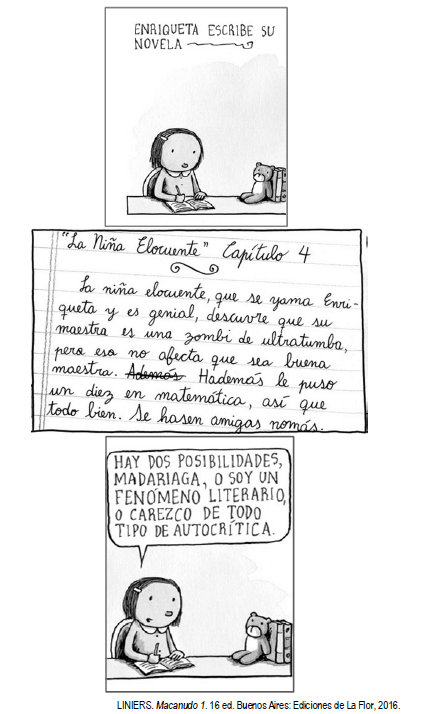 ENRIQUETA ESCRIBE SU
NOVELA
"La Niña Elocuente" Capítulo 4
La niña elocuente, que se yama Enri-
queta y es genial, descuvre que su
maestra es una zombi de ultratumba,
pero eso no afecta que sea buena
maestra. Además Hademás le puso
un diez en matemática, así que
todo bien. Se hasen amigas nomás.
HAY DOS POSIBILIDADES,
MADARIAGA, O SOY UN
FENÓMENO LITERARIO,
O CAREZCO DE TODO
TIPO DE AUTOCRÍTICA.
LINIERS. Macanudo 1. 16 ed. Buenos Aires: Ediciones de La Flor, 2016.